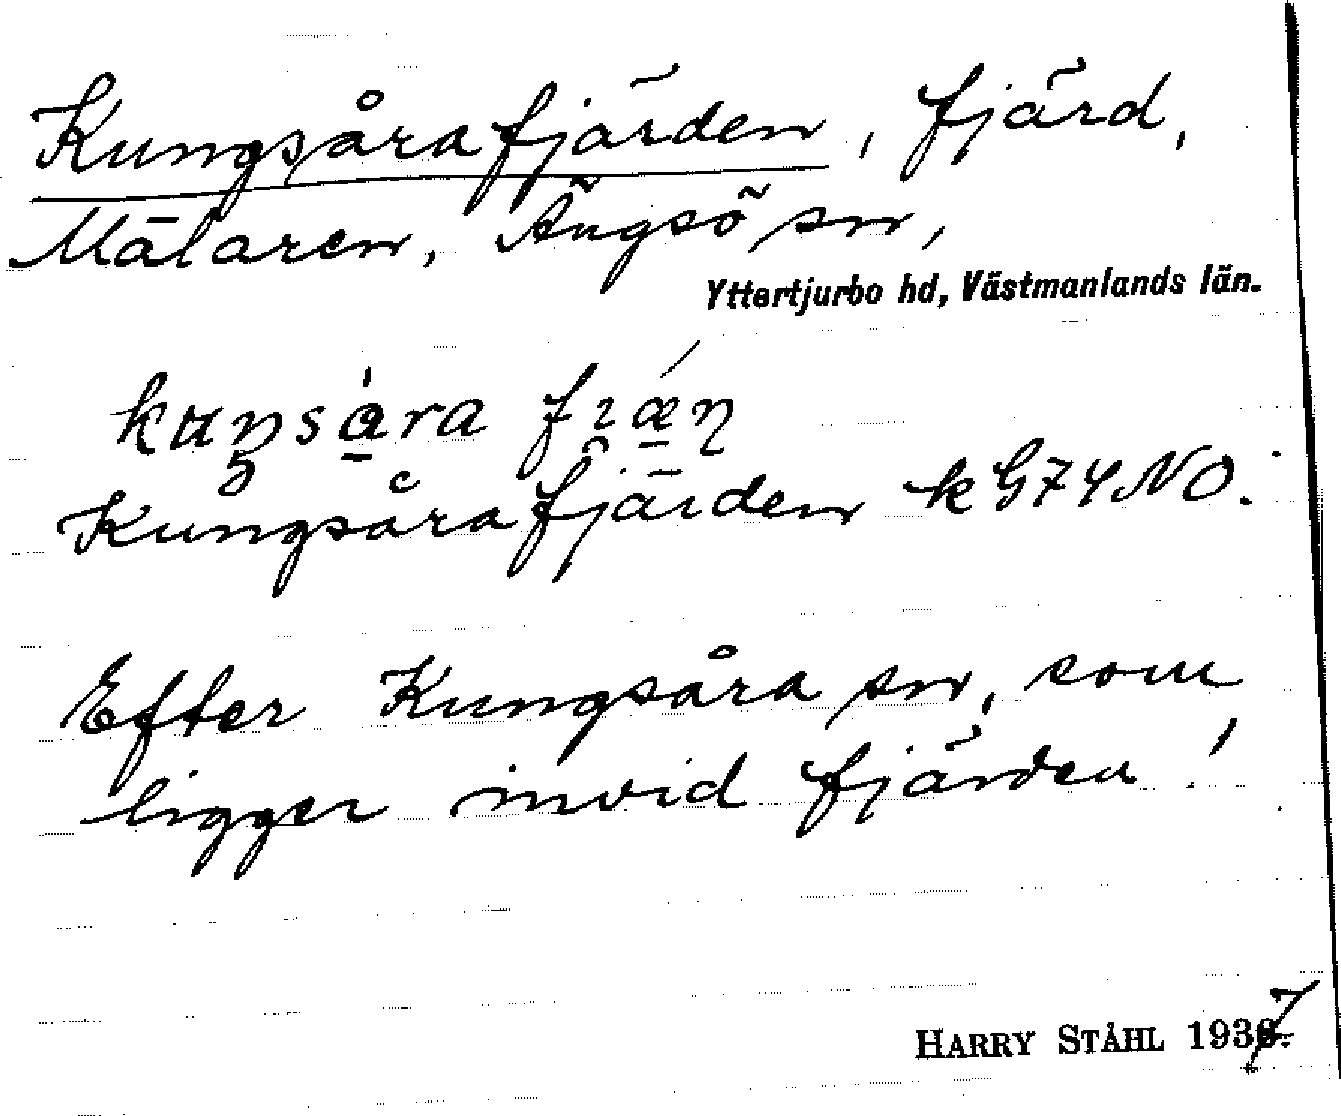 Kungsårafjärden, fjärd,
Mälaren, Ängsö sn,
Yttertjurbo hd, Västmanlands län.
Kungsårafjärden k G74 NO.
Efter Kungsåra sn, som
ligger invid fjärden!
HARRY STÅHL 1937